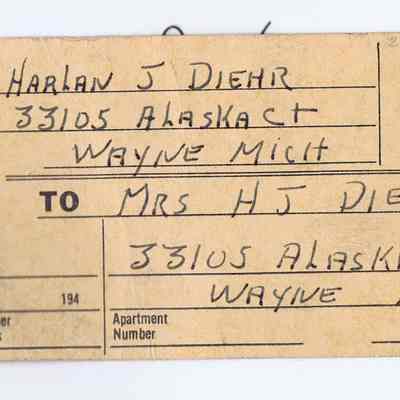 HARLAN J DIEHR
33105 ALASKA CT
WAYNE MICH
TO MRS H J DIE
33105 ALASK
WAYNE
194
Apartment
Number